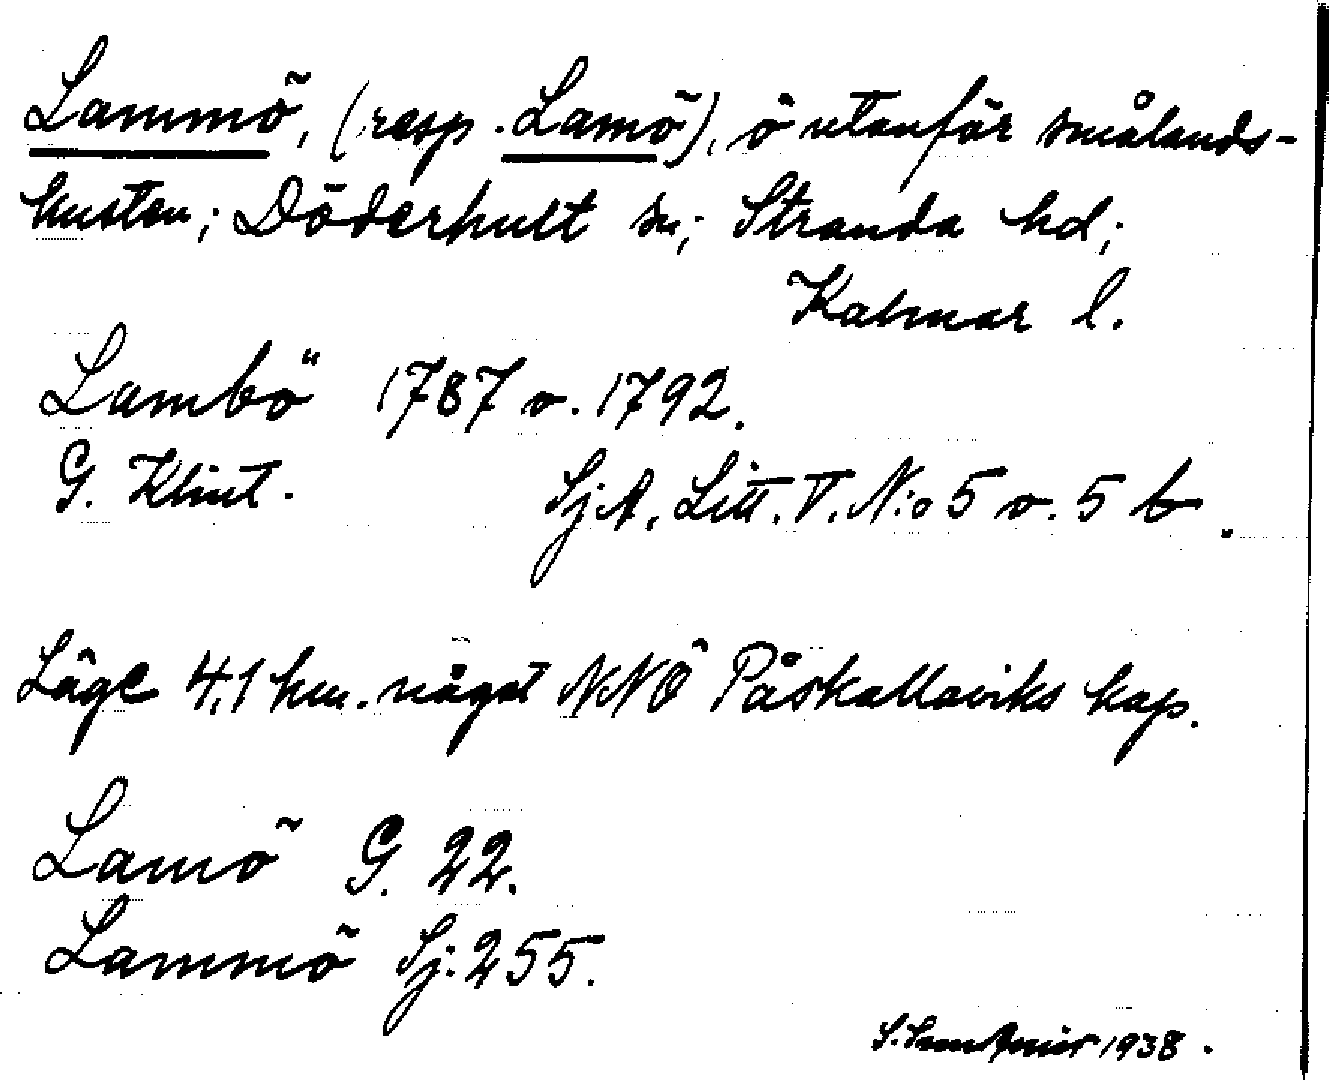 Lammö, (resp. Lamö), ö utanför smålands-
kusten; Döderhult sn; Stranda hd;
Kalmar l.
Lambö 1787 o. 1792.
G. Klint. Sj.A. Litt. V. N:o 5 o. 5 b.
Läge 4,1 km. något NNÖ Påskallaviks kap.
Lamö G. 22.
Lammö Sj. 255.
1938.